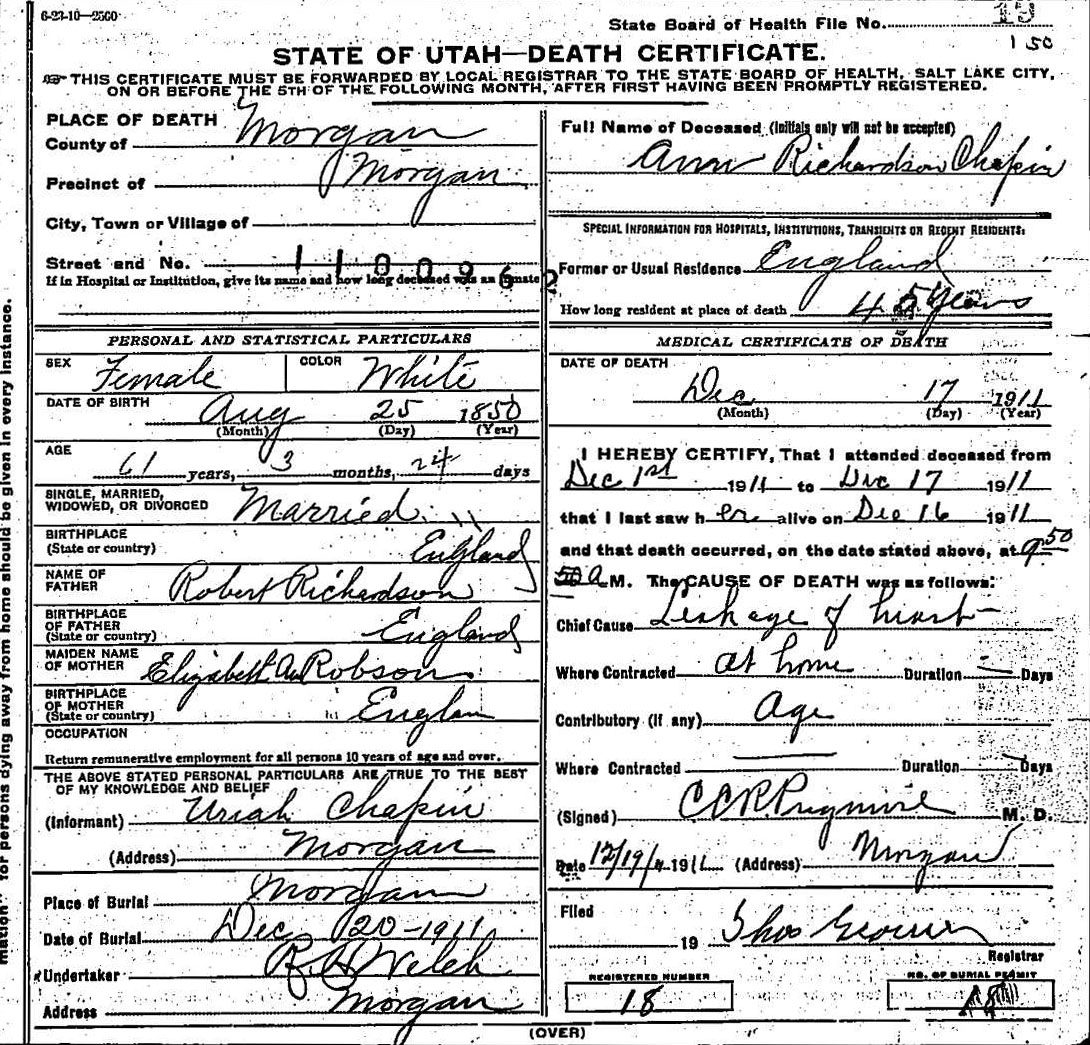 6-23-10—2560
State Board of Health File No. 15
1 50
STATE OF UTAH—DEATH CERTIFICATE.
THIS CERTIFICATE MUST BE FORWARDED BY LOCAL REGISTRAR TO THE STATE BOARD OF HEALTH, SALT LAKE CITY,
ON OR BEFORE THE 5TH OF THE FOLLOWING MONTH, AFTER FIRST HAVING BEEN PROMPTLY REGISTERED.
PLACE OF DEATH
County of Morgan
Precinct of Morgan
City, Town or Village of
Street and No. 1100962
If in Hospital or Institution, give its name and how long deceased was an inmate
PERSONAL AND STATISTICAL PARTICULARS
SEX Female COLOR White
DATE OF BIRTH Aug 25 1850
(Month) (Day) (Year)
AGE 61 years, 3 months, 24 days
SINGLE, MARRIED,
WIDOWED, OR DIVORCED Married
BIRTHPLACE
(State or country) England
NAME OF
FATHER Robert Richardson
BIRTHPLACE
OF FATHER
(State or country) England
MAIDEN NAME
OF MOTHER Elizabeth Robson
BIRTHPLACE
OF MOTHER
(State or country) Englan
OCCUPATION
Return remunerative employment for all persons 10 years of age and over.
THE ABOVE STATED PERSONAL PARTICULARS ARE TRUE TO THE BEST
OF MY KNOWLEDGE AND BELIEF
(Informant) Uriah Chapin
(Address) Morgan
Place of Burial Morgan
Date of Burial Dec 20-1911
Undertaker Welch
Address Morgan
Full Name of Deceased (Initials only will not be accepted)
Ann Richardson Chapin
SPECIAL INFORMATION FOR HOSPITALS, INSTITUTIONS, TRANSIENTS OR RECENT RESIDENTS:
Former or Usual Residence England
How long resident at place of death 45 years
MEDICAL CERTIFICATE OF DEATH
DATE OF DEATH
Dec 17 1911
(Month) (Day) (Year)
I HEREBY CERTIFY, That I attended deceased from
Dec 1st 1911 to Dec 17 1911
that I last saw her alive on Dec 16 1911
and that death occurred, on the date stated above, at 9 50
50 A M. The CAUSE OF DEATH was as follows:
Chief Cause Leakage of heart
Where Contracted at home Duration — Days
Contributory (if any) Age
Where Contracted — Duration — Days
(Signed) M. D.
Date 12/19/ 1911 (Address) Morgan
Filed
19 Thos
Registrar
REGISTERED NUMBER NO. OF BURIAL PERMIT
18 18
(OVER)
mation" for persons dying away from home should be given in every instance.